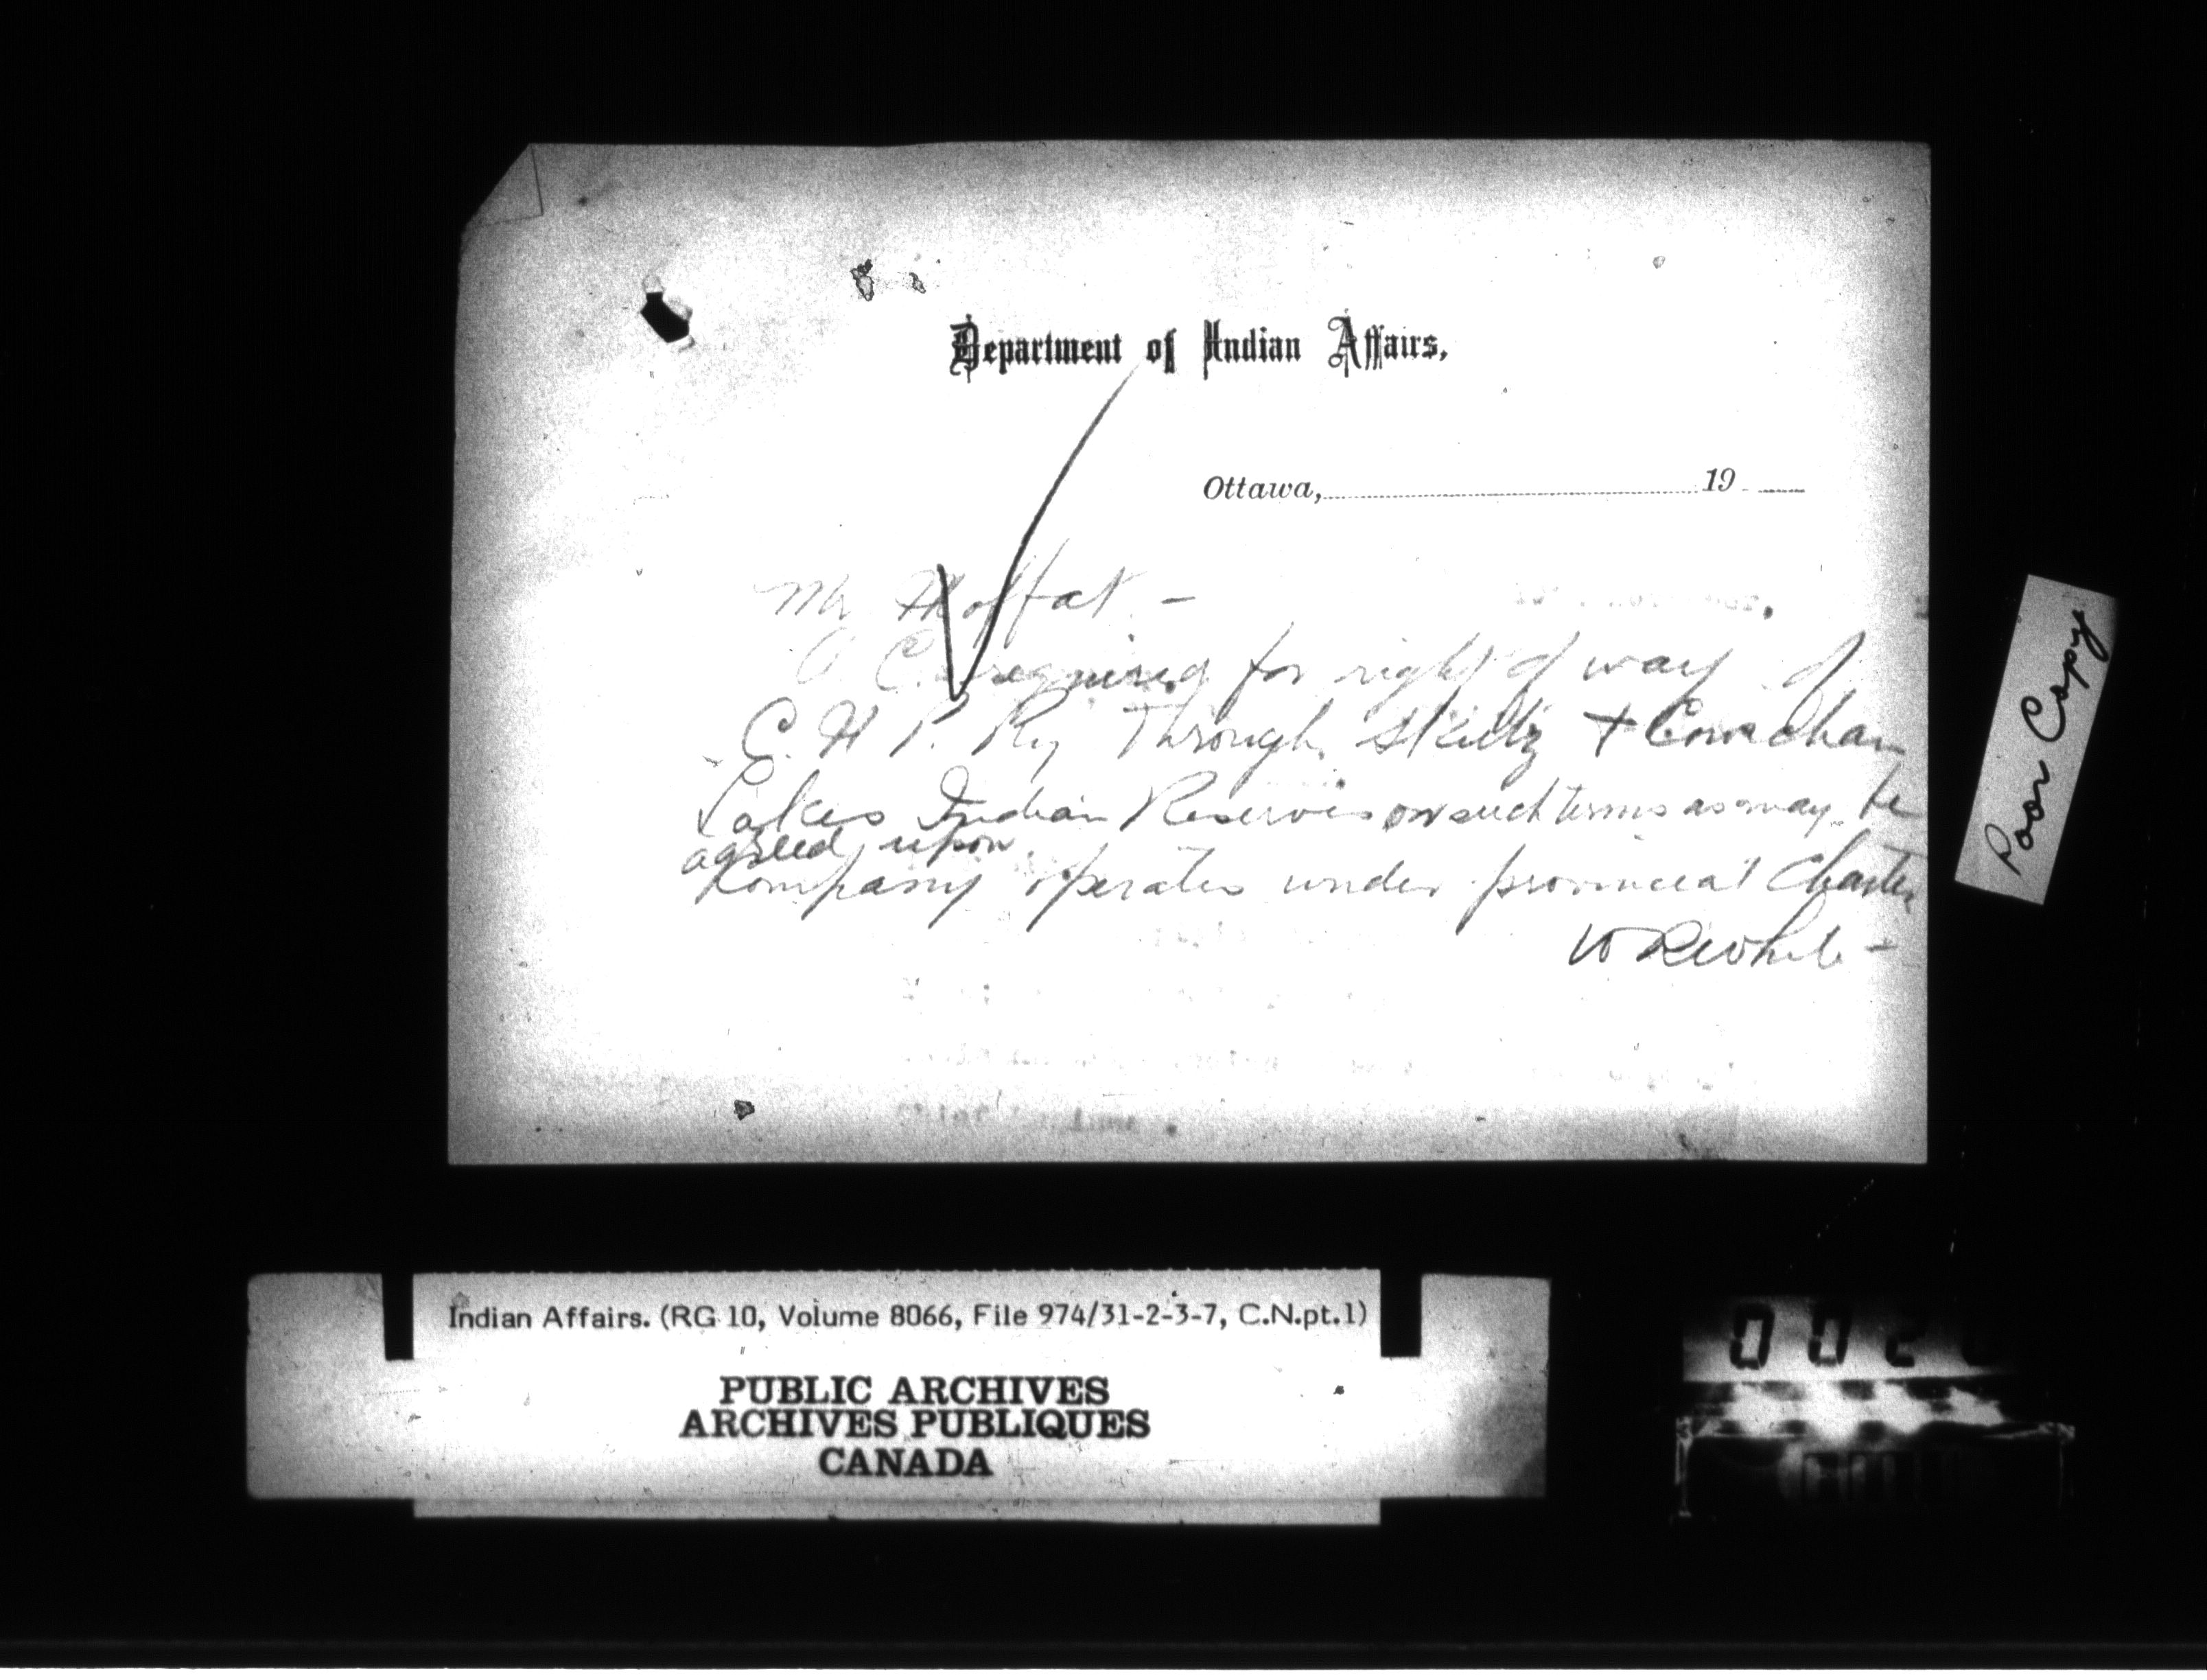 Department of Indian Affairs,
Ottawa, 19
Mr Moffat -
O. C. required for right of way of
C. N. P. Ry Through Skutz + Cowichan
Lakes Indian Reserves on such terms as may be
agreed upon.
Company operates under provincial Charter
W R White -
Poor Copy
Indian Affairs. (RG 10, Volume 8066, File 974/31-2-3-7, C.N.pt.1)
PUBLIC ARCHIVES
ARCHIVES PUBLIQUES
CANADA
002